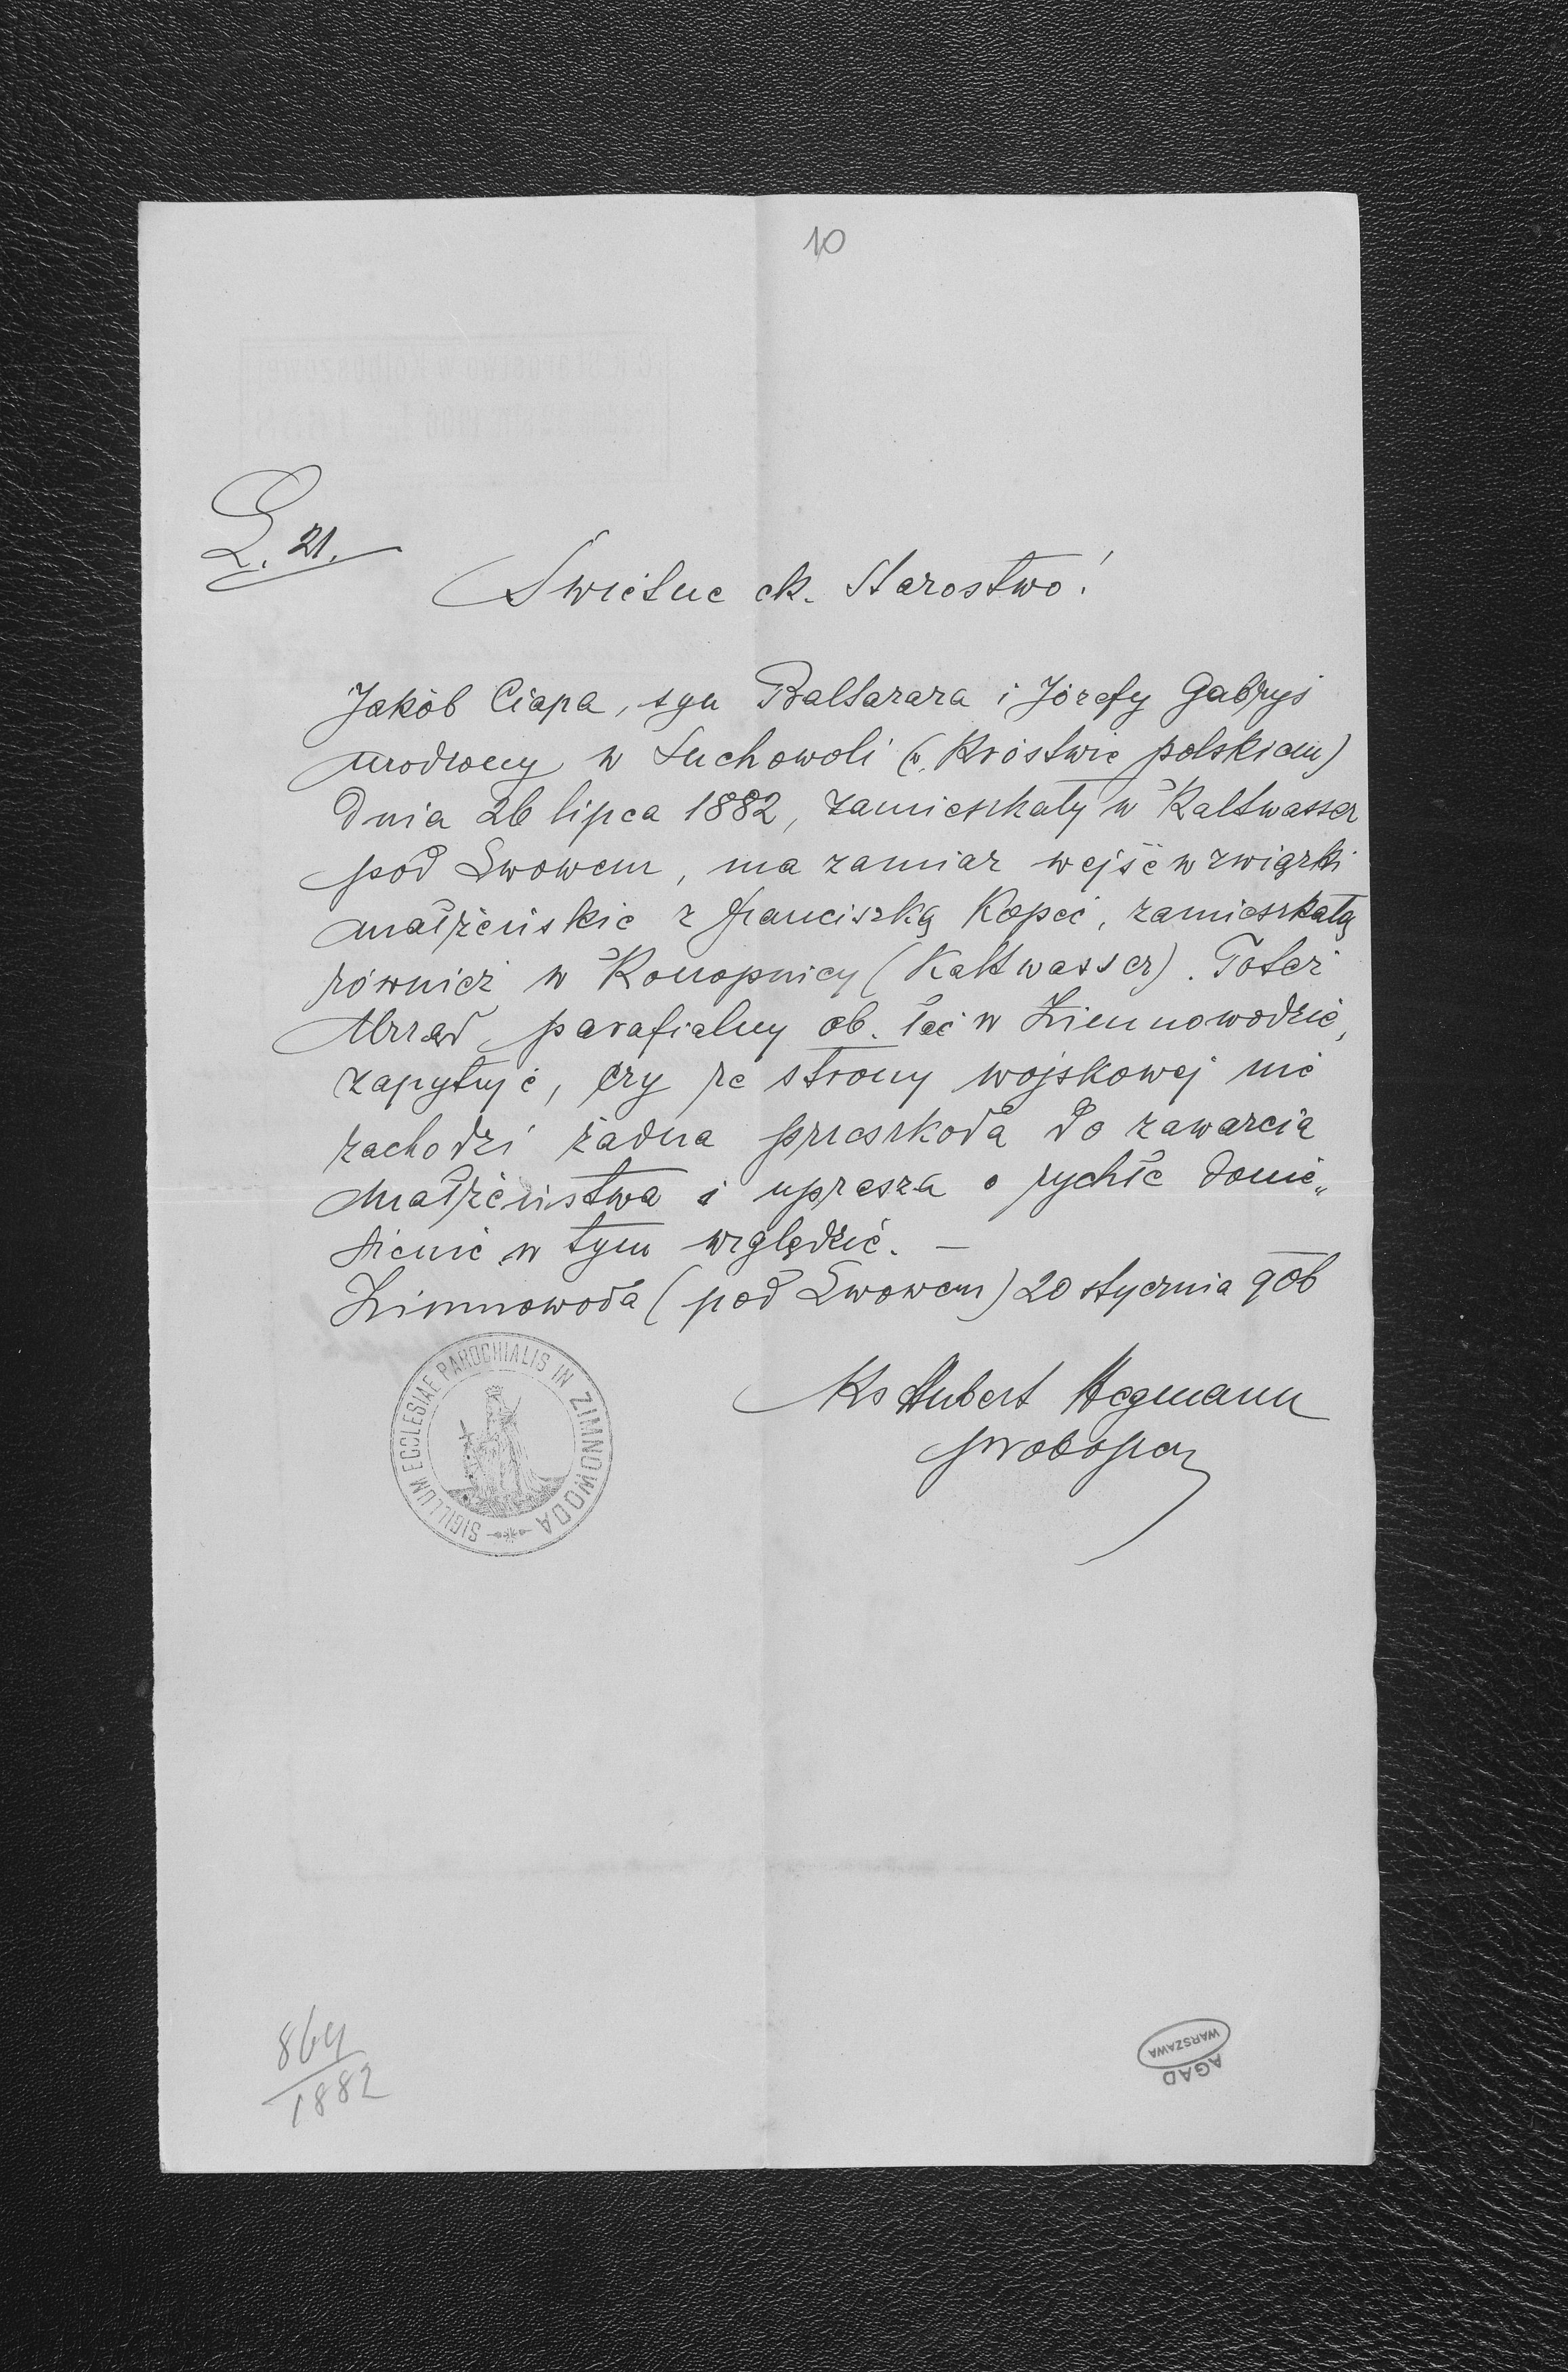 10
L. 21.
Świetne ck. Starostwo!
Jakób Ciapa, syn Baltazara i Józefy Gabryś
urodzony w Suchowoli (w Króstwie polskiem)
dnia 26 lipca 1882, zamieszkały w Kaltwasser
pod Lwowem, ma zamiar wejść w związki
małżeńskie z Franciszką Kopeć, zamieszkałą
również w Konopnicy (Kaltwasser). Toteż
Urząd parafialny ob. łać w Zimnowodzie,
zapytuje, czy ze strony wojskowej nie
zachodzi żadna przeszkoda do zawarcia
małżeństwa i uprasza o rychłe donie„
sienie w tym względzie. —
Zimnowoda (pod Lwowem) 20 stycznia 906
Ks Hubert Hegmann
proboszcz
SIGILLUM ECCLESIAE PAROCHIALIS IN ZIMNOWODA
864
1882
AGAD
WARSZAWA